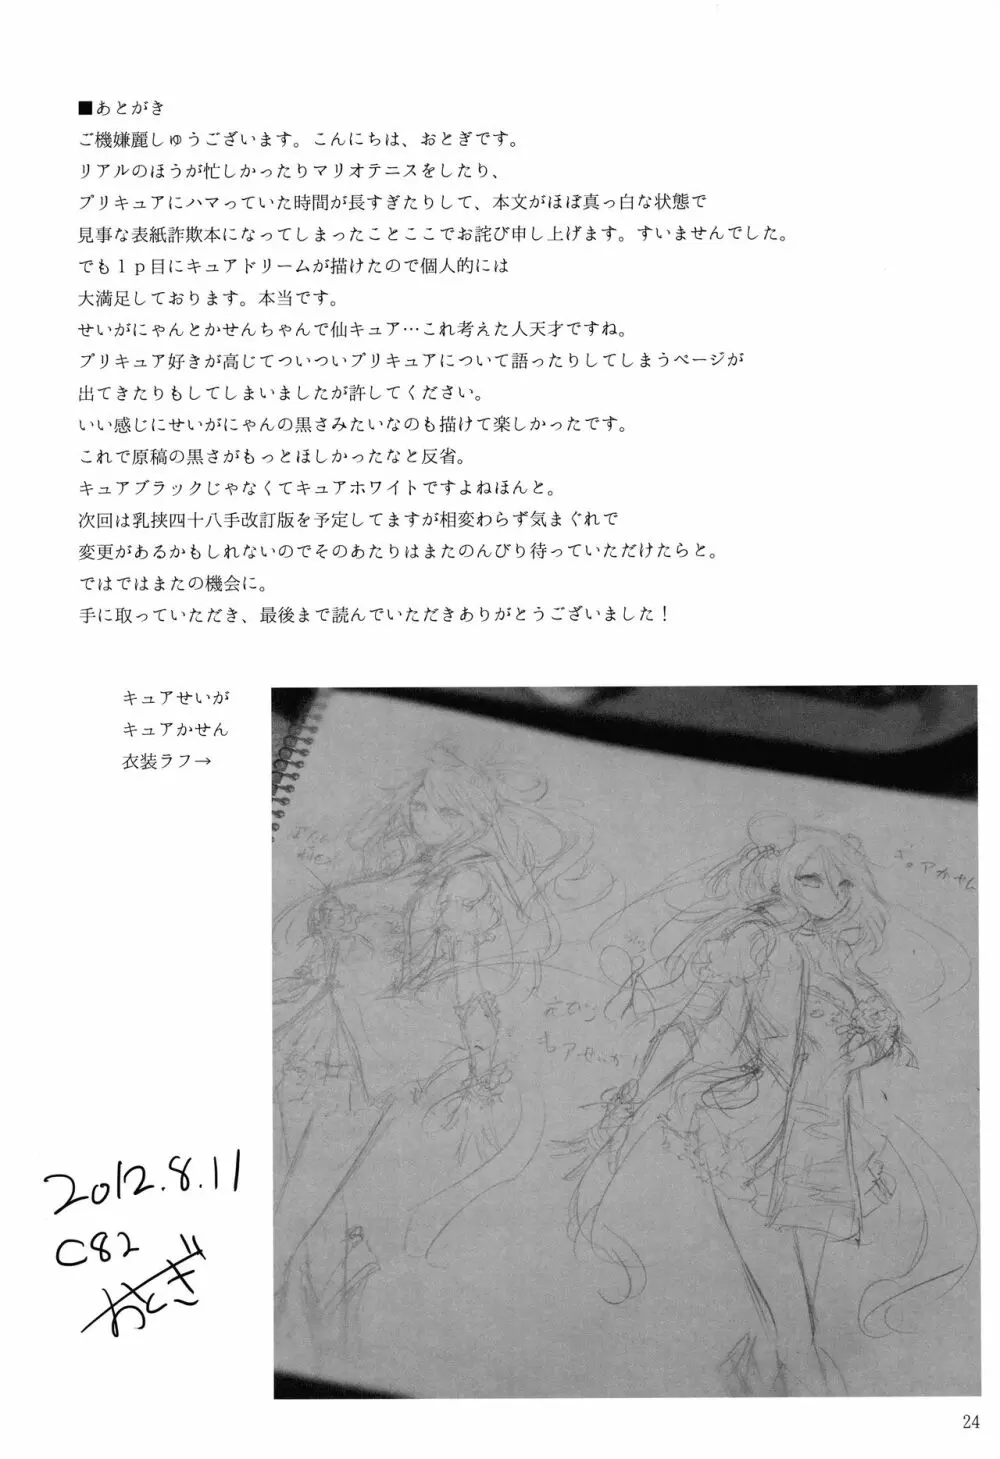 ■あとがき
ご機嫌麗しゅうございます。こんにちは、おとぎです。
リアルのほうが忙しかったりマリオテニスをしたり、
プリキュアにハマっていた時間が長すぎたりして、本文がほぼ真っ白な状態で
見事な表紙詐欺本になってしまったことここでお詫び申し上げます。すいませんでした。
でも１ｐ目にキュアドリームが描けたので個人的には
大満足しております。本当です。
せいがにゃんとかせんちゃんで仙キュア…これ考えた人天才ですね。
プリキュア好きが高じてついついプリキュアについて語ったりしてしまうページが
出てきたりもしてしまいましたが許してください。
いい感じにせいがにゃんの黒さみたいなのも描けて楽しかったです。
これで原稿の黒さがもっとほしかったなと反省。
キュアブラックじゃなくてキュアホワイトですよねほんと。
次回は乳挟四十八手改訂版を予定してますが相変わらず気まぐれで
変更があるかもしれないのでそのあたりはまたのんびり待っていただけたらと。
ではではまたの機会に。
手に取っていただき、最後まで読んでいただきありがとうございました！
キュアせいが
キュアかせん
衣装ラフ→
2012.8.11
C82
おとぎ
24